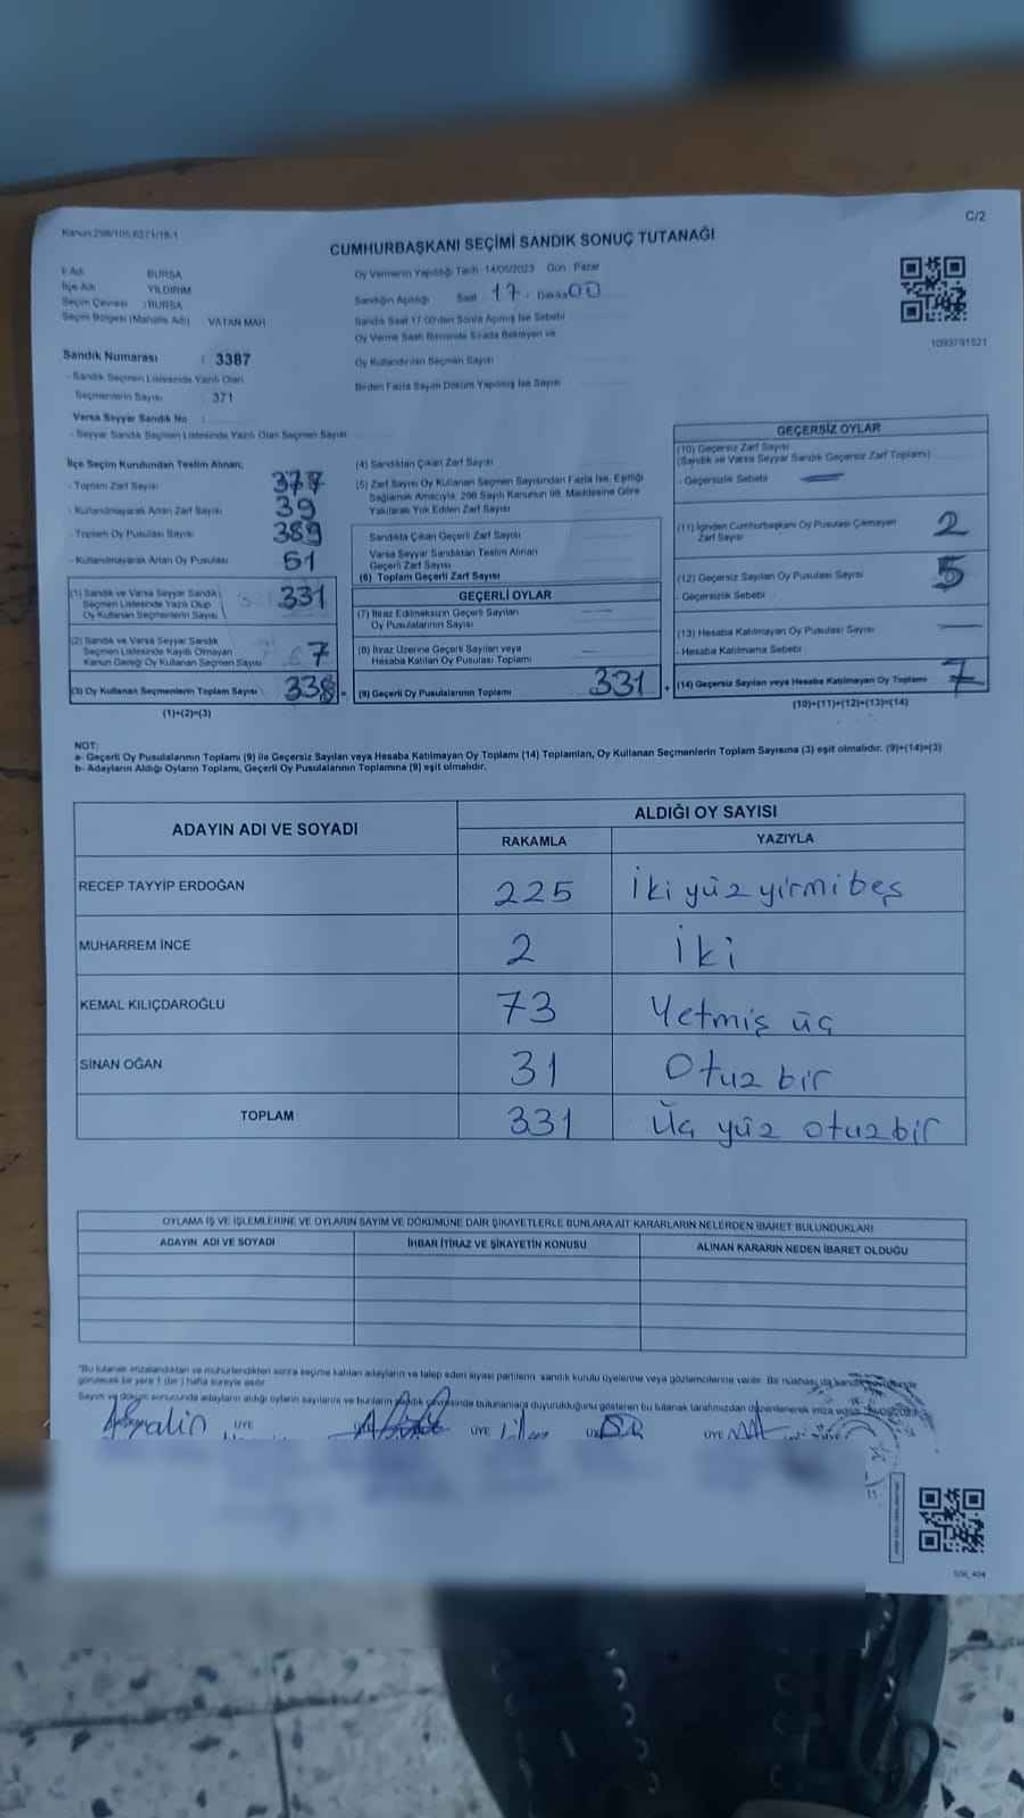 C/2
CUMHURBAŞKANI SEÇİMİ SANDIK SONUÇ TUTANAĞI
İl Adı BURSA
İlçe Adı YILDIRIM
Seçim Çevresi : BURSA
Seçim Bölgesi (Mahalle Adı) VATAN MAH
Oy Vermenin Yapıldığı Tarih : 14/05/2023 Gün : Pazar
Sandığın Açıldığı Saat 17 : Dakika 00
Sandık Saat 17:00'den Sonra Açılmış İse Sebebi
Oy Verme Saati Bitiminde Sırada Bekleyen ve
Oy Kullandırılan Seçmen Sayısı
Birden Fazla Sayım Döküm Yapılmış İse Sayısı
1093791521
Sandık Numarası : 3387
- Sandık Seçmen Listesinde Yazılı Olan
Seçmenlerin Sayısı 371
Varsa Seyyar Sandık No :
- Seyyar Sandık Seçmen Listesinde Yazılı Olan Seçmen Sayısı
İlçe Seçim Kurulundan Teslim Alınan;
- Toplam Zarf Sayısı 377
- Kullanılmayarak Artan Zarf Sayısı 39
- Toplam Oy Pusulası Sayısı 389
- Kullanılmayarak Artan Oy Pusulası 51
(1) Sandık ve Varsa Seyyar Sandık
Seçmen Listesinde Yazılı Olup
Oy Kullanan Seçmenlerin Sayısı 331
(2) Sandık ve Varsa Seyyar Sandık
Seçmen Listesinde Kayıtlı Olmayan
Kanun Gereği Oy Kullanan Seçmen Sayısı 7
(3) Oy Kullanan Seçmenlerin Toplam Sayısı 338 =
(1)+(2)=(3)
(4) Sandıktan Çıkan Zarf Sayısı
(5) Zarf Sayısı Oy Kullanan Seçmen Sayısından Fazla İse, Eşitliği
Sağlamak Amacıyla, 298 Sayılı Kanunun 98. Maddesine Göre
Yakılarak Yok Edilen Zarf Sayısı
Sandıkta Çıkan Geçerli Zarf Sayısı
Varsa Seyyar Sandıktan Teslim Alınan
Geçerli Zarf Sayısı
(6) Toplam Geçerli Zarf Sayısı
GEÇERLİ OYLAR
(7) İtiraz Edilmeksizin Geçerli Sayılan
Oy Pusulalarının Sayısı
(8) İtiraz Üzerine Geçerli Sayılan veya
Hesaba Katılan Oy Pusulası Toplamı
(9) Geçerli Oy Pusulalarının Toplamı 331 +
GEÇERSİZ OYLAR
(10) Geçersiz Zarf Sayısı
(Sandık ve Varsa Seyyar Sandık Geçersiz Zarf Toplamı)
- Geçersizlik Sebebi
(11) İçinden Cumhurbaşkanı Oy Pusulası Çıkmayan
Zarf Sayısı 2
(12) Geçersiz Sayılan Oy Pusulası Sayısı 5
- Geçersizlik Sebebi
(13) Hesaba Katılmayan Oy Pusulası Sayısı
- Hesaba Katılmama Sebebi
(14) Geçersiz Sayılan veya Hesaba Katılmayan Oy Toplamı 7
(10)+(11)+(12)+(13)=(14)
NOT:
a- Geçerli Oy Pusulalarının Toplamı (9) ile Geçersiz Sayılan veya Hesaba Katılmayan Oy Toplamı (14) Toplamları, Oy Kullanan Seçmenlerin Toplam Sayısına (3) eşit olmalıdır. (9)+(14)=(3)
b- Adayların Aldığı Oyların Toplamı, Geçerli Oy Pusulalarının Toplamına (9) eşit olmalıdır.
ADAYIN ADI VE SOYADI ALDIĞI OY SAYISI
RAKAMLA YAZIYLA
RECEP TAYYİP ERDOĞAN 225 İki yüz yirmi beş
MUHARREM İNCE 2 İki
KEMAL KILIÇDAROĞLU 73 Yetmiş üç
SİNAN OĞAN 31 Otuz bir
TOPLAM 331 Üç yüz otuz bir
OYLAMA İŞ VE İŞLEMLERİNE VE OYLARIN SAYIM VE DÖKÜMÜNE DAİR ŞİKAYETLERLE BUNLARA AİT KARARLARIN NELERDEN İBARET BULUNDUKLARI
ADAYIN ADI VE SOYADI İHBAR İTİRAZ VE ŞİKAYETİN KONUSU ALINAN KARARIN NEDEN İBARET OLDUĞU
*Bu tutanak imzalandıktan ve mühürlendikten sonra seçime katılan adayların ve talep eden siyasi partilerin sandık kurulu üyelerine veya gözlemcilerine verilir. Bir nüshası da
görülecek bir yere 1 (bir) hafta süreyle asılır.
Sayım ve döküm sonucunda adayların aldığı oyların sayılarını ve bunların sandık çevresinde bulunanlara duyurulduğunu gösteren bu tutanak tarafımızdan düzenlenerek imza
ÜYE ÜYE ÜYE